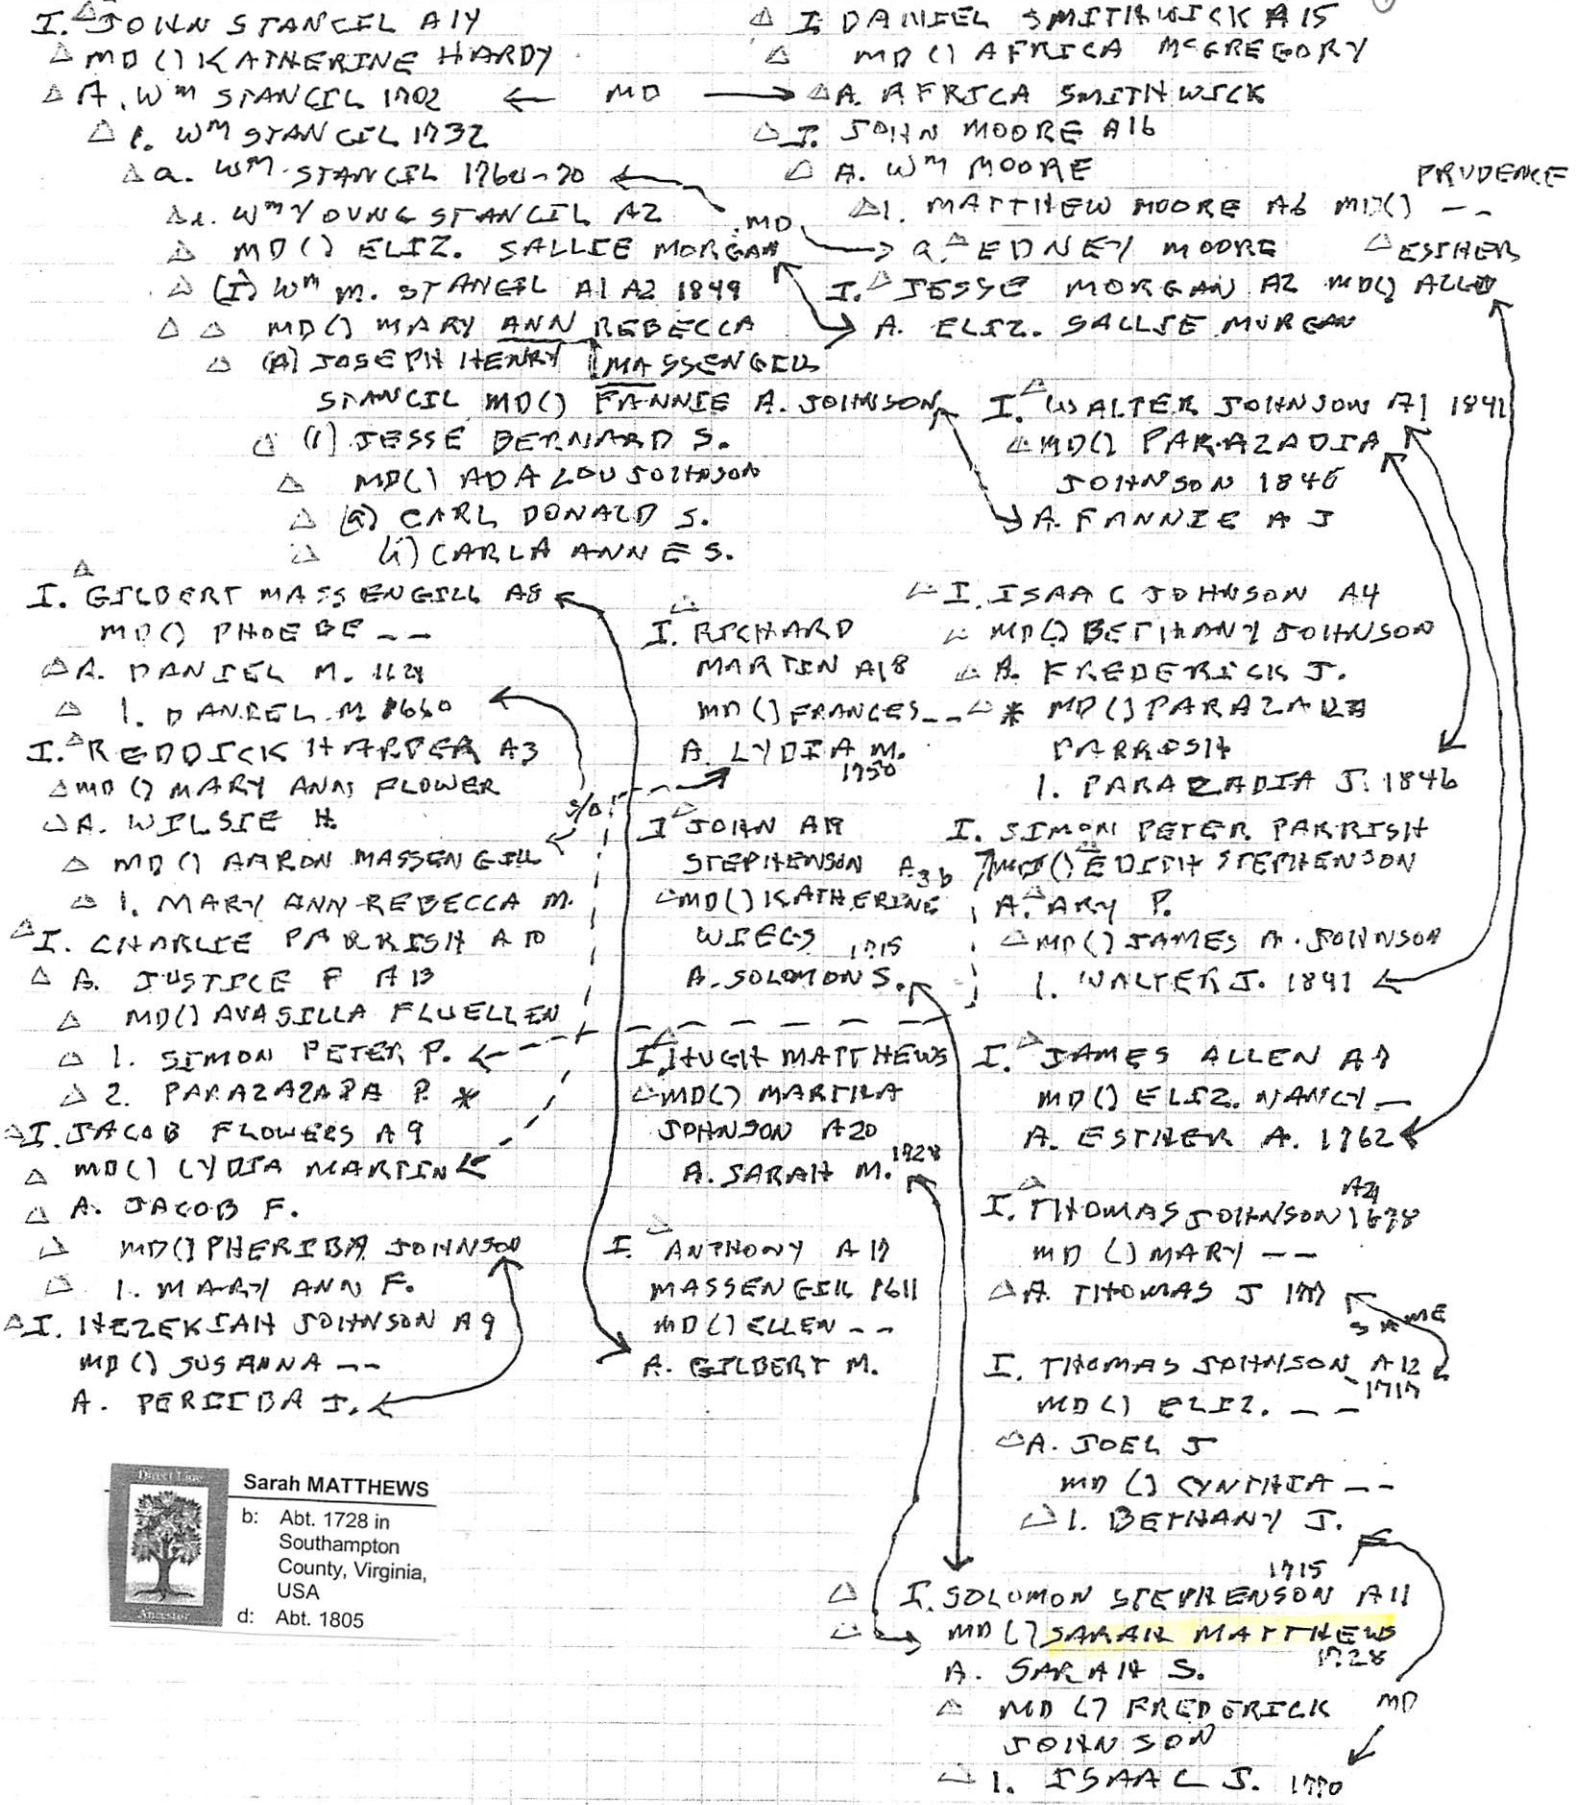 I. JOHN STANCIL A14
MD () KATHERINE HARDY
A. Wm STANCIL 1702 ← MD →
1. Wm STANCIL 1732
a. Wm. STANCIL 1760-70
i. Wm YOUNG STANCIL A2
MD
MD () ELIZ. SALLIE MORGAN
(I) Wm M. STANCIL A1 A2 1849
MD () MARY ANN REBECCA
MASSENGILL
(A) JOSEPH HENRY
STANCIL MD() FANNIE A. JOHNSON
(1) JESSE BERNARD S.
MD() ADA LOU JOHNSON
(a) CARL DONALD S.
(i) CARLA ANNE S.
I. DANIEL SMITHWICK A15
MD () AFRICA McGREGORY
A. AFRICA SMITHWICK
I. JOHN MOORE A16
A. Wm MOORE
PRUDENCE
1. MATTHEW MOORE A6 MD() --
a. EDNEY MOORE
ESTHER
I. JESSE MORGAN A2 MD() ALLEN
A. ELIZ. SALLIE MORGAN
I. WALTER JOHNSON A1 1841
MD() PARAZADIA
JOHNSON 1846
A. FANNIE A J
I. GILBERT MASSENGILL A8
MD() PHOEBE --
A. DANIEL M.
1. DANIEL M
I. REDDICK HARPER A3
MD () MARY ANN FLOWER
A. WILSIE H.
MD () AARON MASSENGILL
1. MARY ANN REBECCA M.
I. CHARLIE PARRISH A10
A. JUSTICE P A13
MD() AVASILLA FLUELLEN
1. SIMON PETER P.
2. PARAZAZADA P. *
I. JACOB FLOWERS A9
MD() LYDIA MARTIN
A. JACOB F.
MD() PHERIBA JOHNSON
1. MARY ANN F.
I. HEZEKIAH JOHNSON A9
MD () SUSANNA --
A. PERIIBA J.
S/O
I. RICHARD
MARTIN A18
MD () FRANCES --
A. LYDIA M.
1750
I JOHN A19
STEPHENSON
MD() KATHERINE
WIEGS
1715
A. SOLOMON S.
I. HUGH MATTHEWS
MD() MARTHA
JOHNSON A20
1728
A. SARAH M.
I. ANTHONY A17
MASSENGILL 1611
MD() ELLEN --
A. GILBERT M.
I. ISAAC JOHNSON A4
MD() BETHANY JOHNSON
A. FREDERICK J.
* MD () PARAZADA
PARRISH
1. PARAZADIA J. 1846
I. SIMON PETER PARRISH
A3b MD () EDITH STEPHENSON
A. ARY P.
MD() JAMES A. JOHNSON
1. WALTER J. 1841
I. JAMES ALLEN A7
MD () ELIZ. NANCY --
A. ESTHER A. 1762
A21
I. THOMAS JOHNSON 1678
MD () MARY --
A. THOMAS J 1717
SAME
I. THOMAS JOHNSON A12
1717
MD () ELIZ. --
A. JOEL J
MD () CYNTHIA --
1. BETHANY J.
1715
I. SOLOMON STEPHENSON A11
MD () SARAH MATTHEWS
1728
A. SARAH S.
MD () FREDERICK
JOHNSON
MD
1. ISAAC J. 1770
Direct Line
Ancestor
Sarah MATTHEWS
b: Abt. 1728 in
Southampton
County, Virginia,
USA
d: Abt. 1805